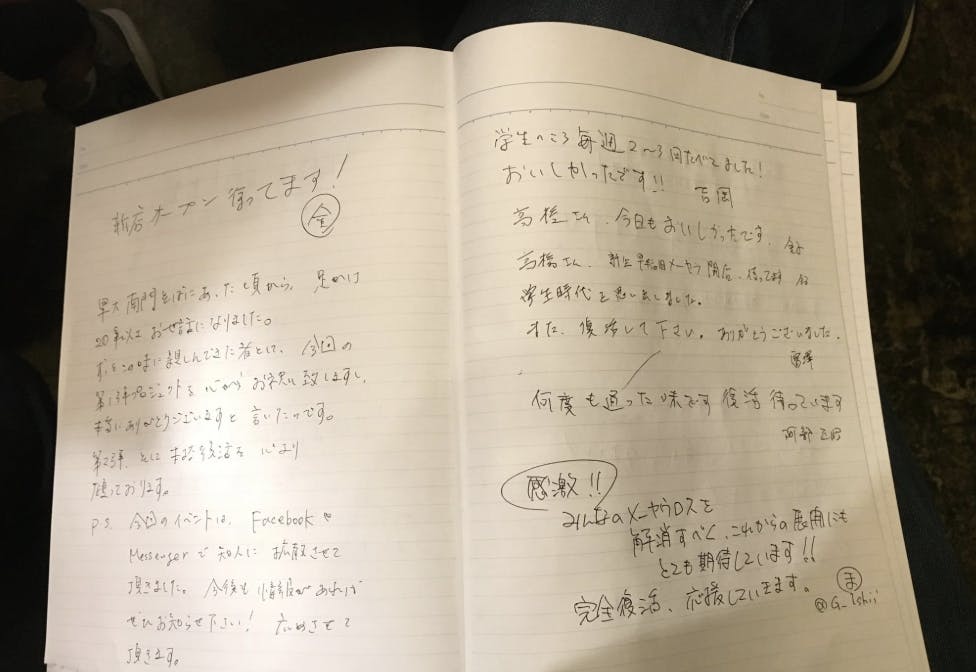 新店オープン待ってます!
金
早大南門そばにあった頃から、足かけ
20年以上お世話になりました。
ずっとこの味に親しんできた者として、今回の
第1弾プロジェクトを心からお祝い致しますし、
本当にありがとうございますと言いたいのです。
第2弾、さらに本格復活を心より
願っております。
P.S. 今回のイベントは、Facebookや
Messengerで知人に拡散させて
頂きました。今後も情報があれば
ぜひお知らせ下さい! 広めさせて
頂きます。
学生のころ毎週2〜3回たべてました!
おいしかったです!! 吉岡
高橋さん、今日もおいしかったです。金子
高橋さん、新生早稲田メーヤウ開店、待ってます
学生時代を思い出しました。
また、復活して下さい。ありがとうございました。
何度も通った味です 復活待っています
阿部
感激!!
みんなのメーヤウロスを
解消すべく、これからの展開にも
とても期待しています!!
完全復活、応援していきます。ま
@G_Ishii